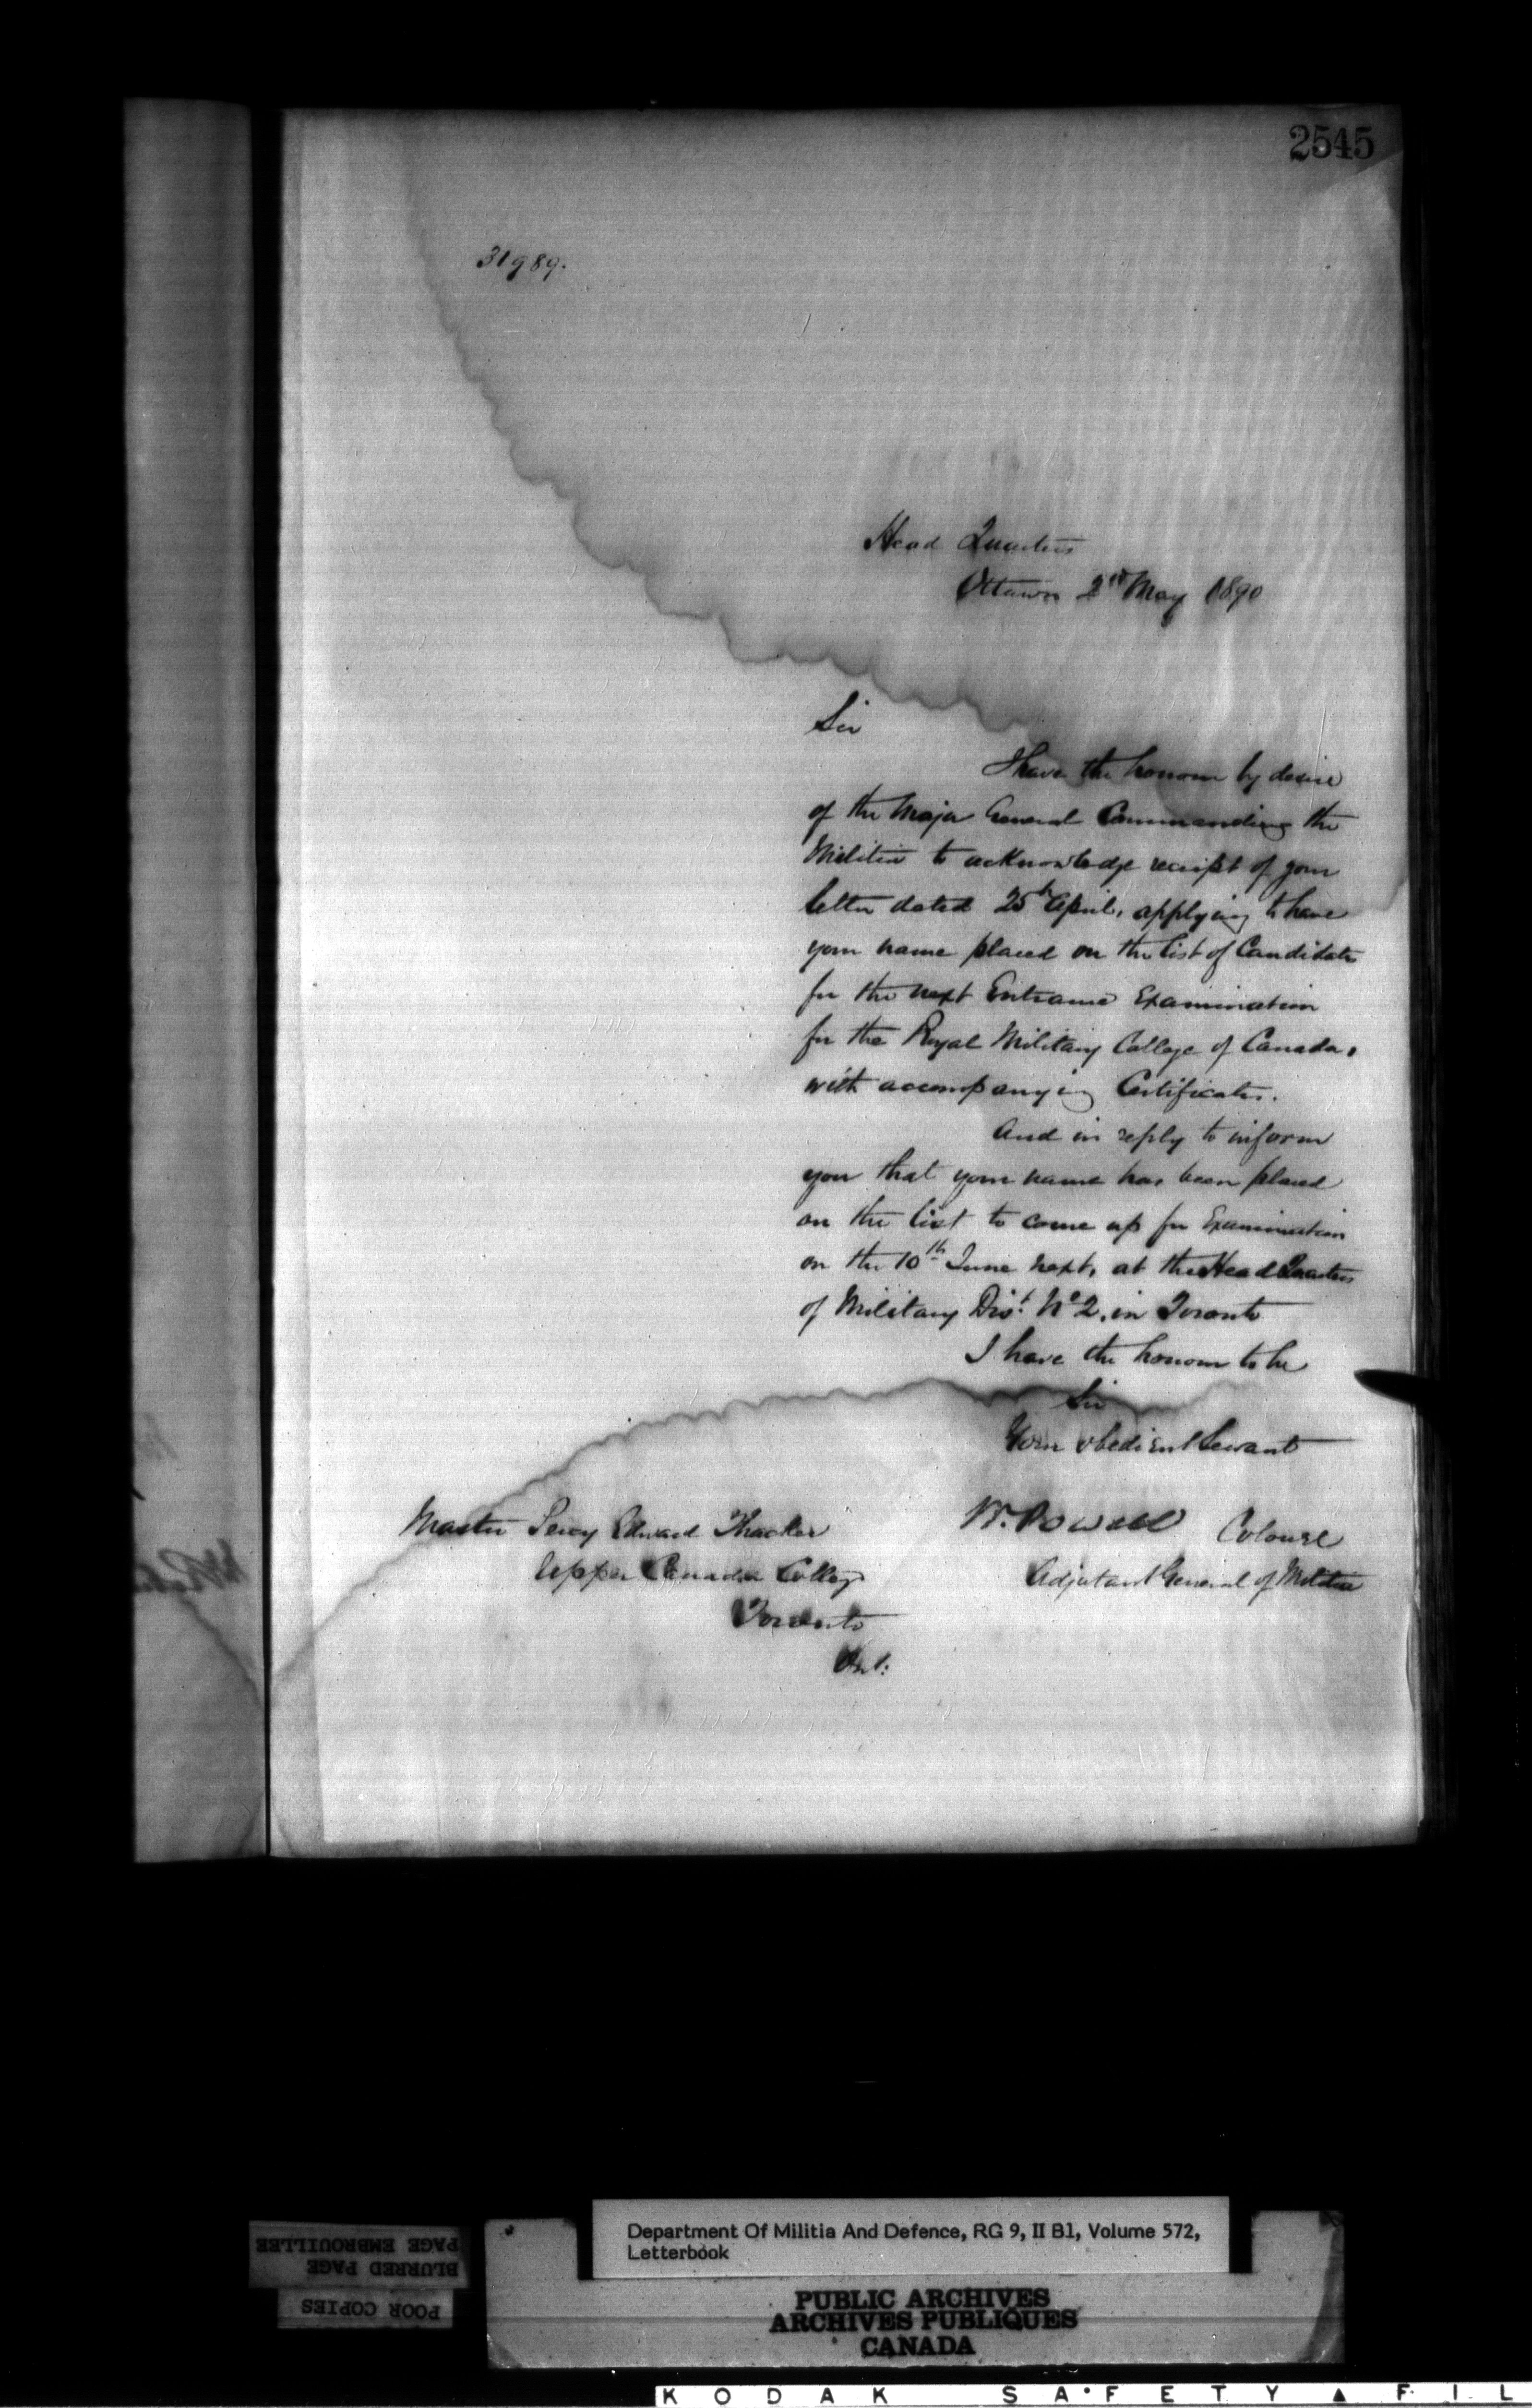 2545
31989.
Head Quarters
Ottawa 2nd May 1890
Sir
I have the honour by desire
of the Major General Commanding the
Militia to acknowledge receipt of your
letter dated 25th April, applying to have
your name placed on the list of Candidates
for the next Entrance Examination
for the Royal Military College of Canada,
with accompanying Certificates.
And in reply to inform
you that your name has been placed
on the list to come up for Examination
on the 10th June next, at the Head Quarters
of Military Dist. No 2, in Toronto
I have the honour to be
Sir
Your obedient Servant
W. Powell Colonel
Adjutant General of Militia
Master Percy Edward Thacker
Upper Canada College
Toronto
Ont:
Department Of Militia And Defence, RG 9, II B1, Volume 572,
Letterbook
PUBLIC ARCHIVES
ARCHIVES PUBLIQUES
CANADA
POOR COPIES
BLURRED PAGE
PAGE EMBROUILLEE
KODAK SAFETY ▲ FIL